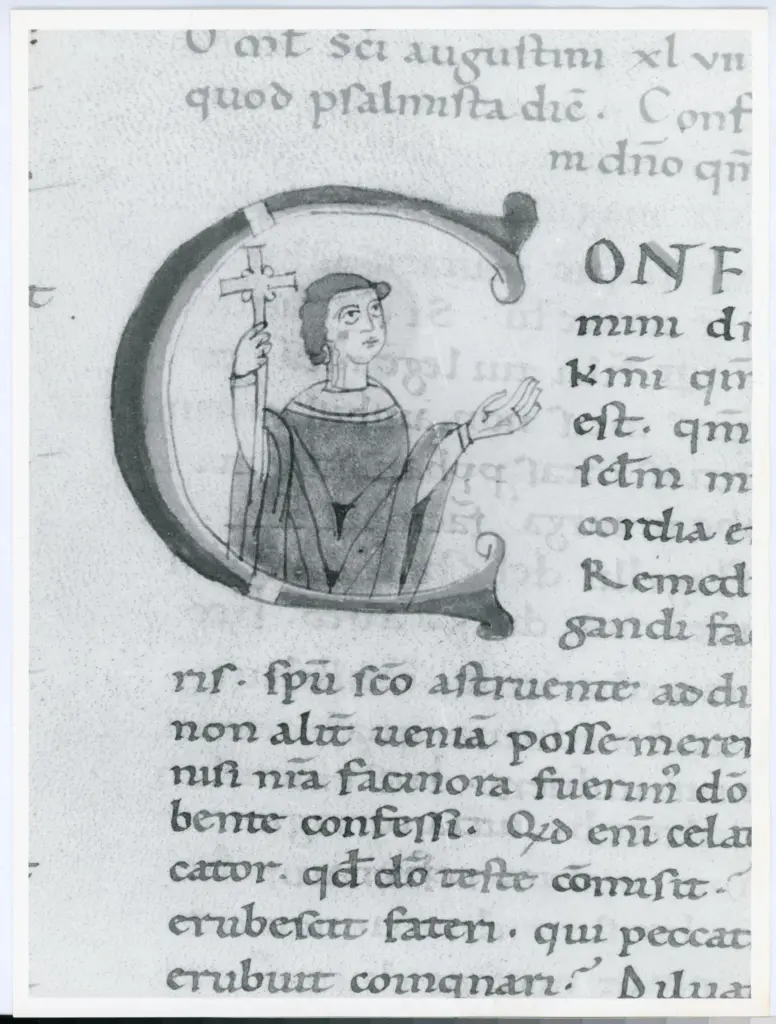 Omt̄ Sc̄i auguſtini xl vii
quod pſalmiſta dic̄. Conf
in dn̄o qm̄
CONF
mini di
km̄i qm̄
eſt. qm̄
ſcd̄m m
cordia e
Remedi
gandi fa
riſ. ſpū ſc̄o aſtruente addi
non alit̄ ueniā poſſe merer
niſi nr̄a facinora fuerim᾽ dō
bente confeſſi. Qd̄ eni̅ celat
cator. qd̄ dō teſte cōmiſit.
erubeſcit fateri. qui peccat
erubuit coinqnari. Diluat